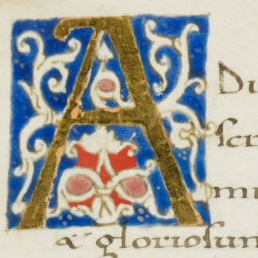 A Du
scr
mu
& gloriosum